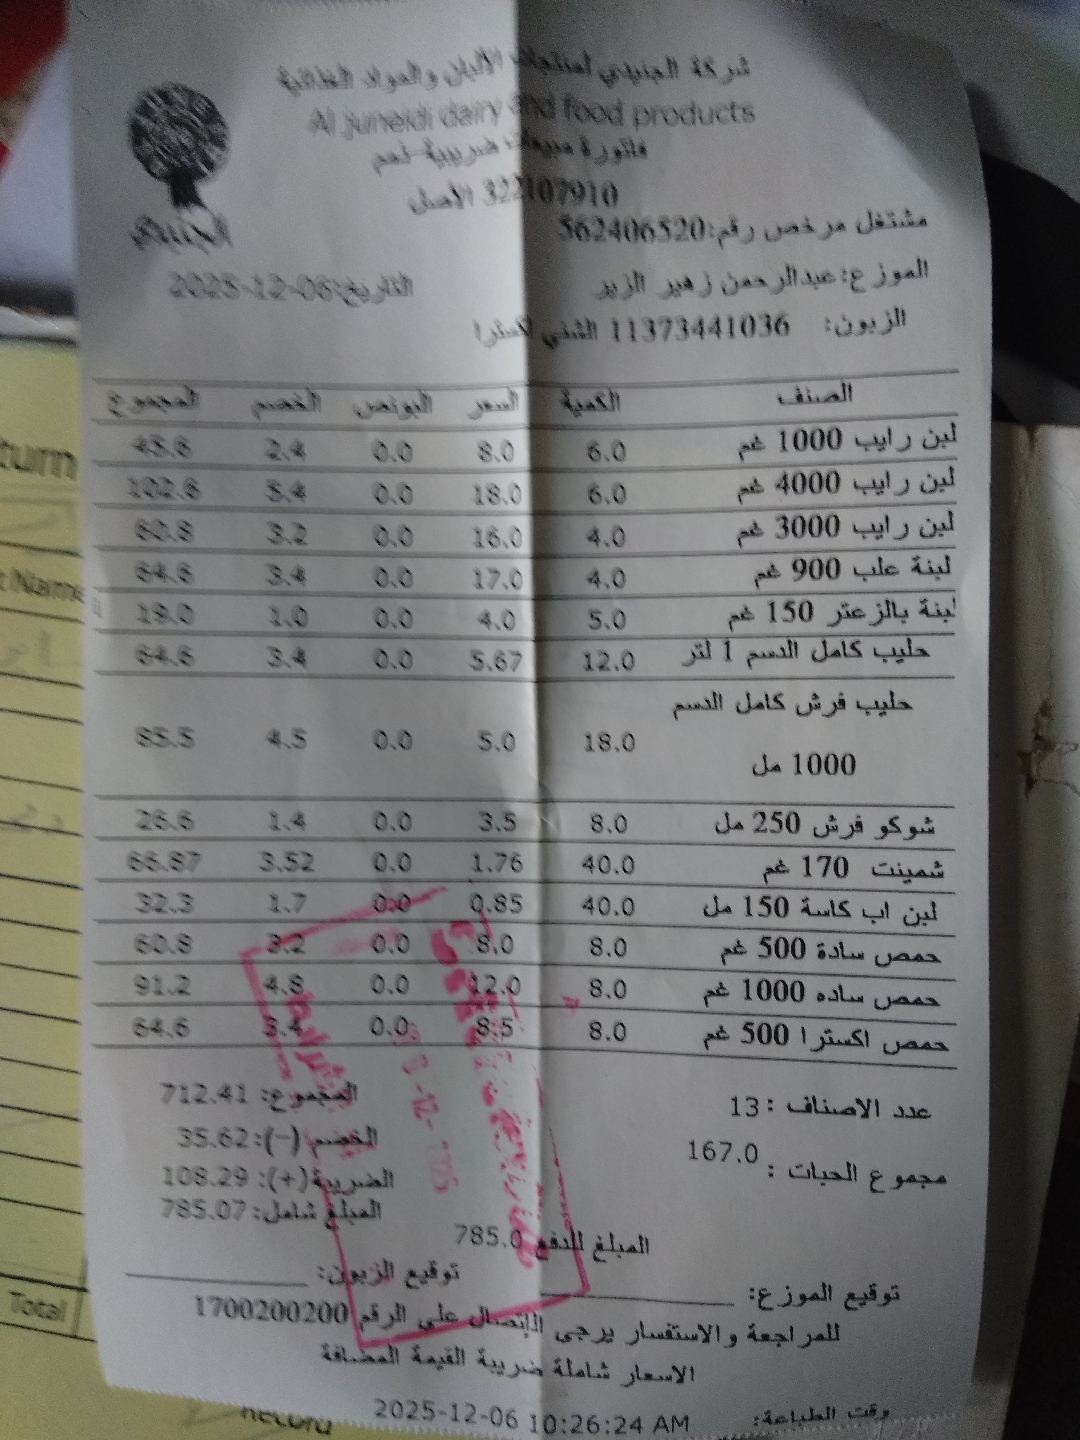 شركة الجنيدي لمنتجات الألبان والمواد الغذائية
Al juneidi dairy and food products
فاتورة مبيعات ضريبية ذمم
322107910 الأصل
الجنيدي
مشتغل مرخص رقم:562406520
الموزع:عبدالرحمن زهير الزير
التاريخ:2025-12-06
الزبون: 11373441036 الشني اكسترا
الصنف الكمية السعر البونص الخصم المجموع
لبن رايب 1000 غم 6.0 8.0 0.0 2.4 45.6
لبن رايب 4000 غم 6.0 18.0 0.0 5.4 102.6
لبن رايب 3000 غم 4.0 16.0 0.0 3.2 60.8
لبنة علب 900 غم 4.0 17.0 0.0 3.4 64.6
لبنة بالزعتر 150 غم 5.0 4.0 0.0 1.0 19.0
حليب كامل الدسم 1 لتر 12.0 5.67 0.0 3.4 64.6
حليب فرش كامل الدسم
1000 مل 18.0 5.0 0.0 4.5 85.5
شوكو فرش 250 مل 8.0 3.5 0.0 1.4 26.6
شمينت 170 غم 40.0 1.76 0.0 3.52 66.87
لبن اب كاسة 150 مل 40.0 0.85 0.0 1.7 32.3
حمص سادة 500 غم 8.0 8.0 0.0 3.2 60.8
حمص ساده 1000 غم 8.0 12.0 0.0 4.8 91.2
حمص اكسترا 500 غم 8.0 8.5 0.0 3.4 64.6
عدد الاصناف : 13
مجموع الحبات : 167.0
المجموع: 712.41
الخصم (-): 35.62
الضريبة(+): 108.29
المبلغ شامل: 785.07
المبلغ للدفع 785.0
توقيع الزبون:
توقيع الموزع:
للمراجعة والاستفسار يرجى الإتصال على الرقم 1700200200
الاسعار شاملة ضريبة القيمة المضافة
وقت الطباعة: 2025-12-06 10:26:24 AM
turn
Name
Total
Record